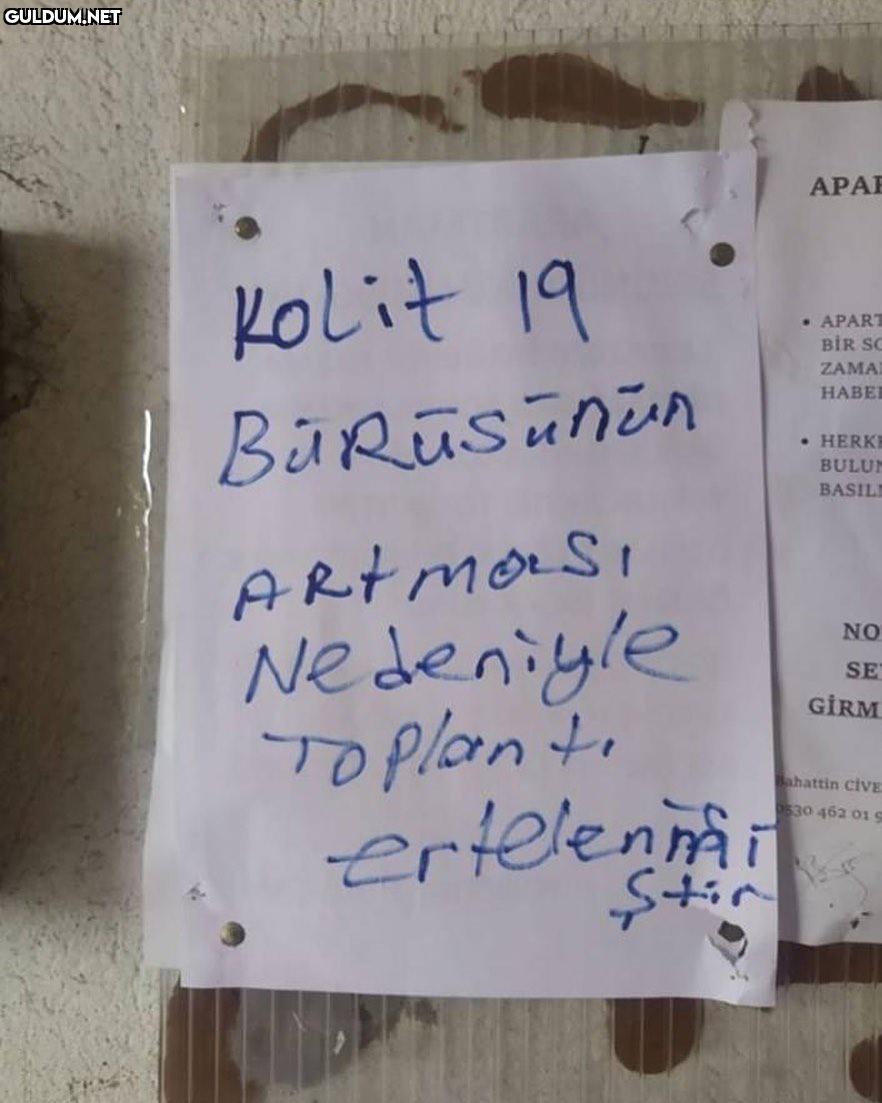 GULDUM.NET
Kolit 19
BÜRÜSÜNÜN
ARtması
Nedeniyle
Toplantı
ertelenmi
ştir
APAR
• APART
BİR SO
ZAMA
HABE
• HERK
BULUN
BASIL
NO
SE
GİRM
Bahattin CİVE
0530 462 01 9